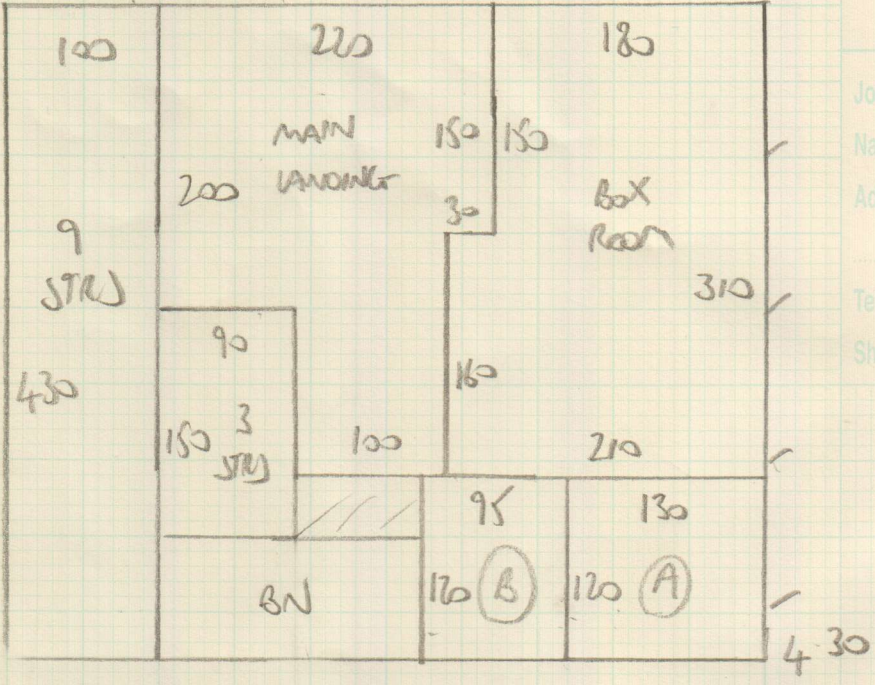 100
220
180
MAIN
LANDING
150
150
200
30
BOX
ROOM
9
STRS
310
90
430
160
150
3
STRS
100
210
95
130
120
B
120
A
BN
4 30
Jo
Na
Ad
Te
Sh